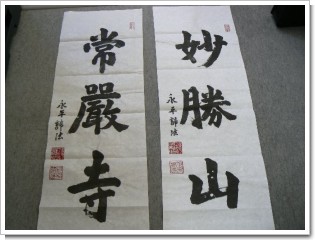 妙勝山
永平諦法
常嚴寺
永平諦法